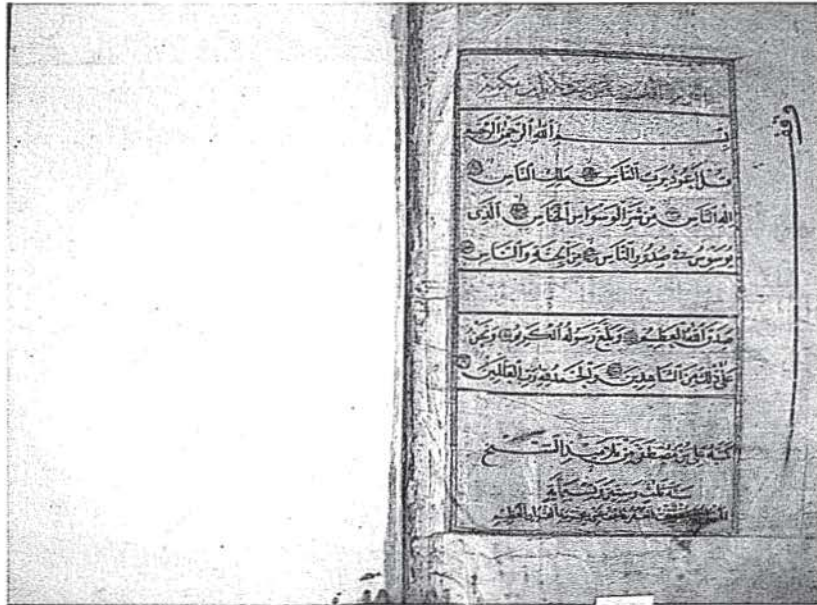 بِسْمِ ٱللَّهِ ٱلرَّحْمَٰنِ ٱلرَّحِيمِ
قُلْ اَعُوذُ بِرَبِّ ٱلنَّاسِ مَلِكِ ٱلنَّاسِ
اِلٰهِ ٱلنَّاسِ مِنْ شَرِّ ٱلْوَسْوَاسِ ٱلْخَنَّاسِ ٱلَّذِى
يُوَسْوِسُ فِى صُدُورِ ٱلنَّاسِ مِنَ ٱلْجِنَّةِ وَٱلنَّاسِ
صَدَقَ ٱللَّهُ ٱلْعَظِيمُ وَبَلَّغَ رَسُولُهُ ٱلْكَرِيمُ وَنَحْنُ
عَلَى ذٰلِكَ مِنَ ٱلشَّاهِدِينَ وَٱلْحَمْدُ لِلَّهِ رَبِّ ٱلْعَالَمِينَ
كتبه علي بن مصطفى من تلاميذ الشيخ
سنة ثلث وستين
وقف